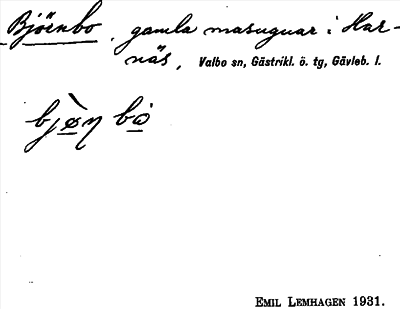 Björnbo, gamla masugnar i Har-
näs, Valbo sn, Gästrikl. ö. tg, Gävleb. l.
bjø̀ŋ bo
EMIL LEMHAGEN 1931.